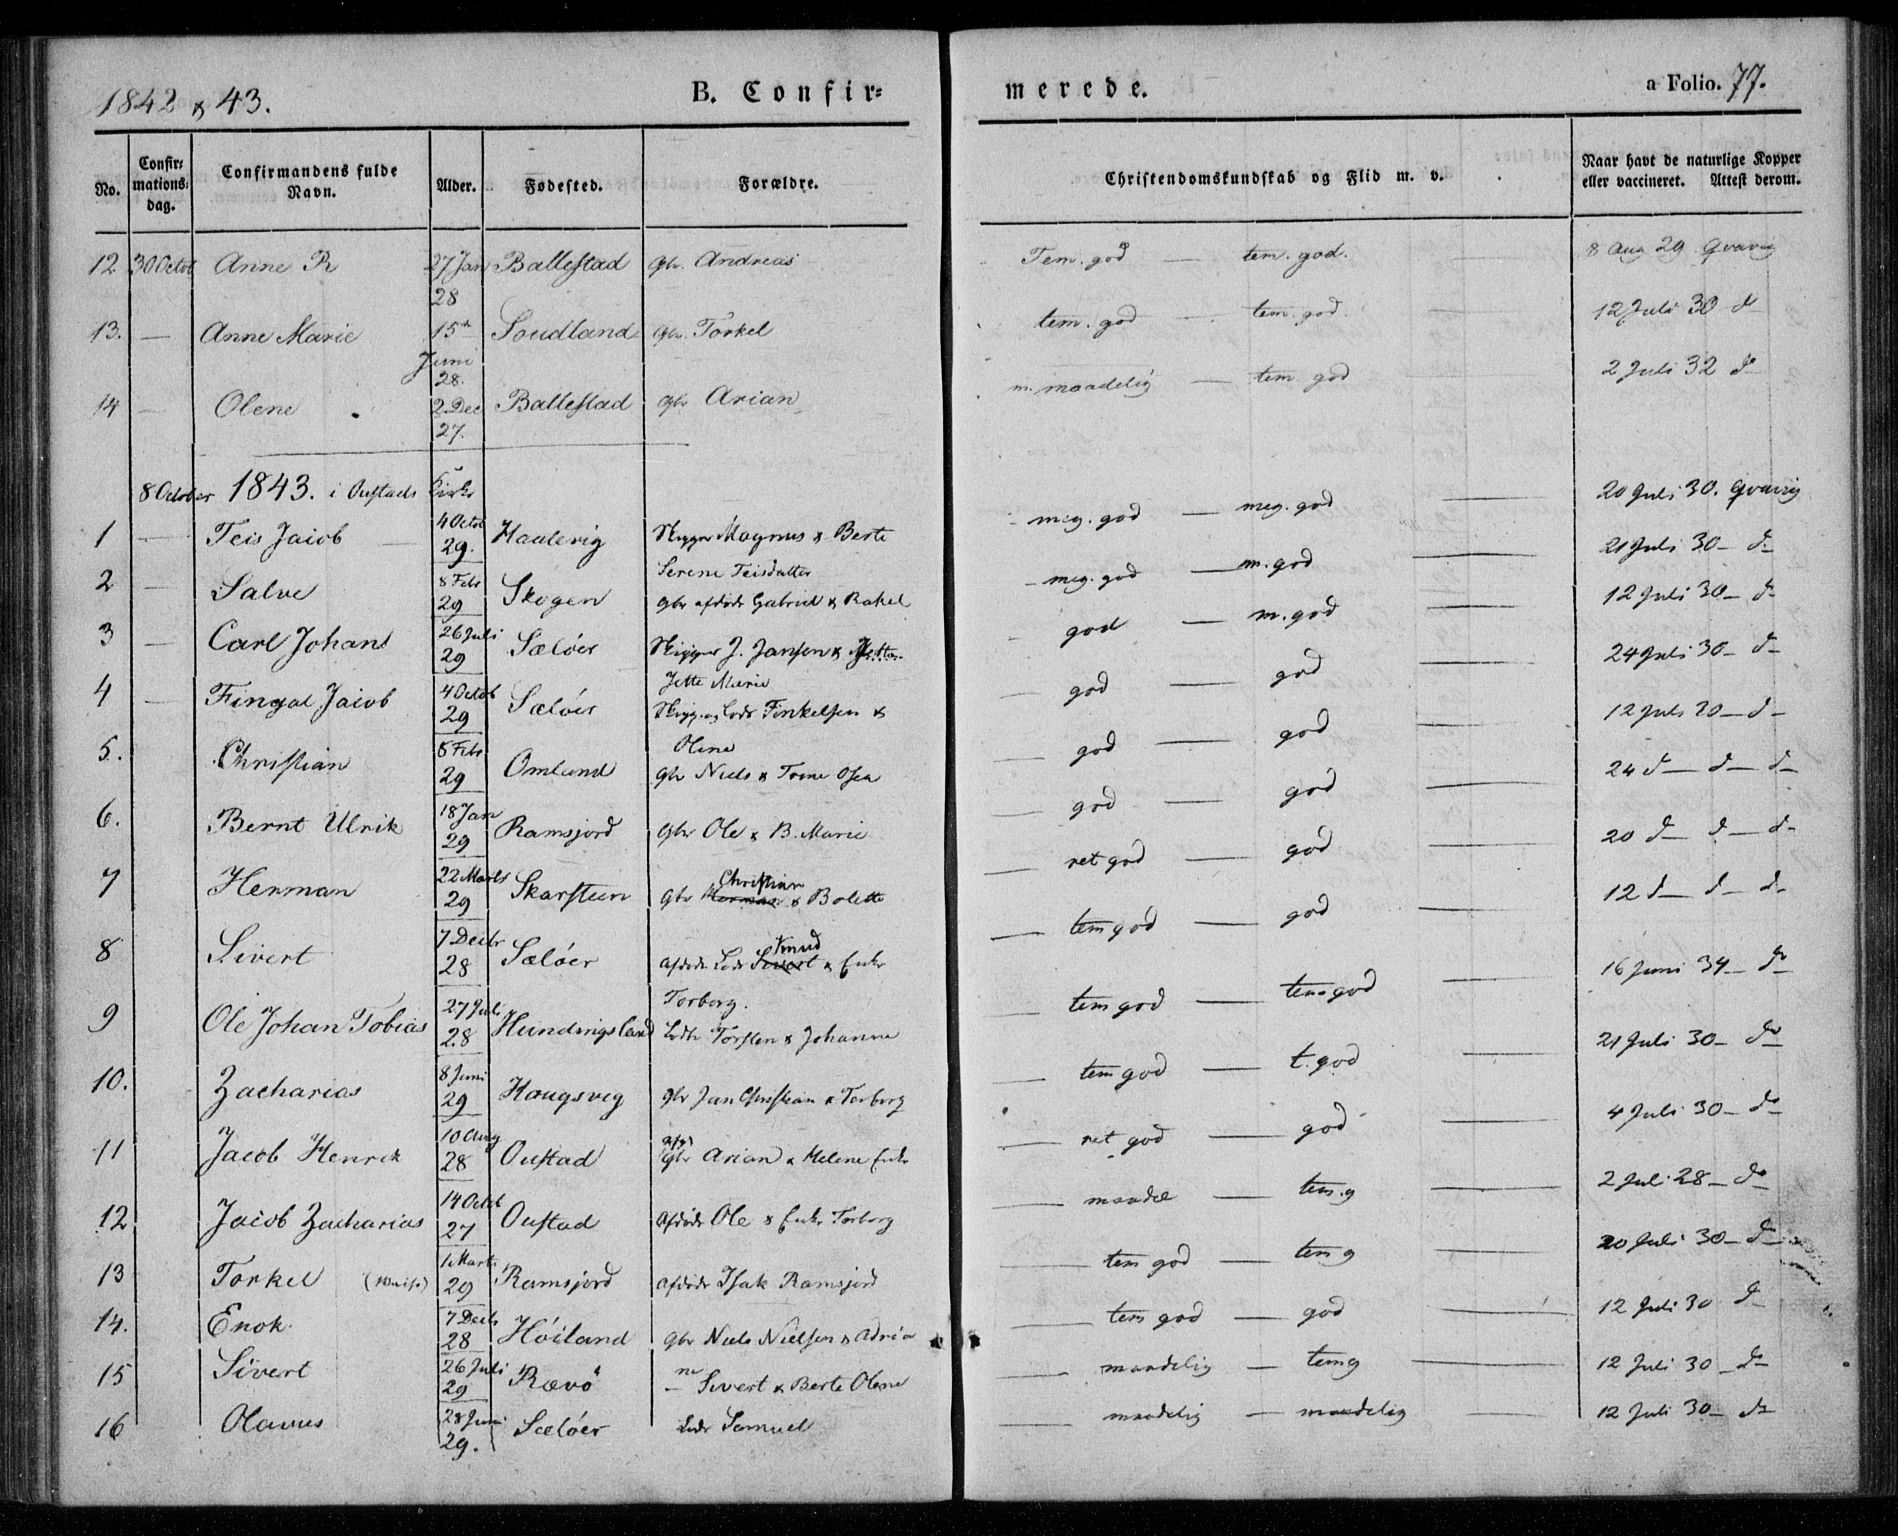 1842 & 43. B. Confirmerede. a Folio. 77.
No. Confirmationsdag. Confirmandens fulde Navn. Alder. Fødested. Forældre. Christendomskundskab og Flid m. v. Naar havt de naturlige Kopper eller vaccineret. Attest derom.
12 30 Octob Anne R 27 Jan 28 Ballestad gbr. Andreas Tem. god — tem. god. 8 Aug 29 Qvavig
13. — Anne Marie 15 Juni 28. Soudland gbr. Torkel tem. god — tem. god. 12 Juli 30 d
14 — Olene 2 Dec 27. Ballestad gbr Arian m. maadelig — tem. god 2 Juli 32 d
8 October 1843. i Oustads Kirke
1 — Teis Jacob 4 Octob 29. Haalevig Skipper Magnus & Berte Serene Teisdatter meg. god — meg. god — 20 Juli 30. Qvavig
2 — Salve 8 Febr 29 Skogen gbr afdøde Gabriel & Rakel meg. god — m. god — 21 Juli 30 — d
3 — Carl Johan 26 Juli 29 Sæløer Skipper J. Jansen & Jette Marie god — m. god — 12 Juli 30 — d
4 — Fingal Jacob 4 Octob 29 Sæløer Skipp. og Lods Finkelsen & Olene god — god — 24 Juli 30 — d
5. Christian 8 Febr 29 Omland gbr Niels & Trine Osea god — god — 12 Juli 30 — d
6. Bernt Ulrik 18 Jan 29 Ramsjord gbr Ole & B. Marie god — god — 24 d — d — d
7 Herman 22 Marts 29 Skarsteen gbr Christian & Bolette ret god — god — 20 d — d — d
8 Sivert 7 Decbr 28 Sæløer afdøde Lods Knud & Enke Torborg. tem god — god — 12 d — d — d
9 Ole Johan Tobias 27 Juli 28 Hundingsland Lods Torsten & Johanne tem god — tem god — 16 Juni 34 — do
10. Zacharias 8 Juni 29 Haugsvig gbr Jan Christian & Torborg tem god — t. god — 21 Juli 30 — do
11 Jacob Henrik 10 Aug 28 Oustad afd gbr Arian & Helene Enke ret god — god — 4 Juli 30 — do
12 Jacob Zacharias 14 Octob 27 Oustad Afdøde Ole & Enke Torborg maadel — tem. g — 2 Juli 28 — do
13 Torkel 1 Marts 29 Ramsjord afdøde Isak Ramsjord tem god — tem g — 20 Juli 30 — d
14. Enok 7 Decb 28 Høiland gbr Niels Nielsen & Adriane tem god — god — 12 Juli 30 d
15 Sivert 26 Juli 29 Rævø — Sivert & Berte Olene maadelig — tem g — 12 Juli 30 — do
16 Olaus 28 Juni 29. Sæløer Lods Samuel maadelig — maadelig — 12 Juli 30 — do